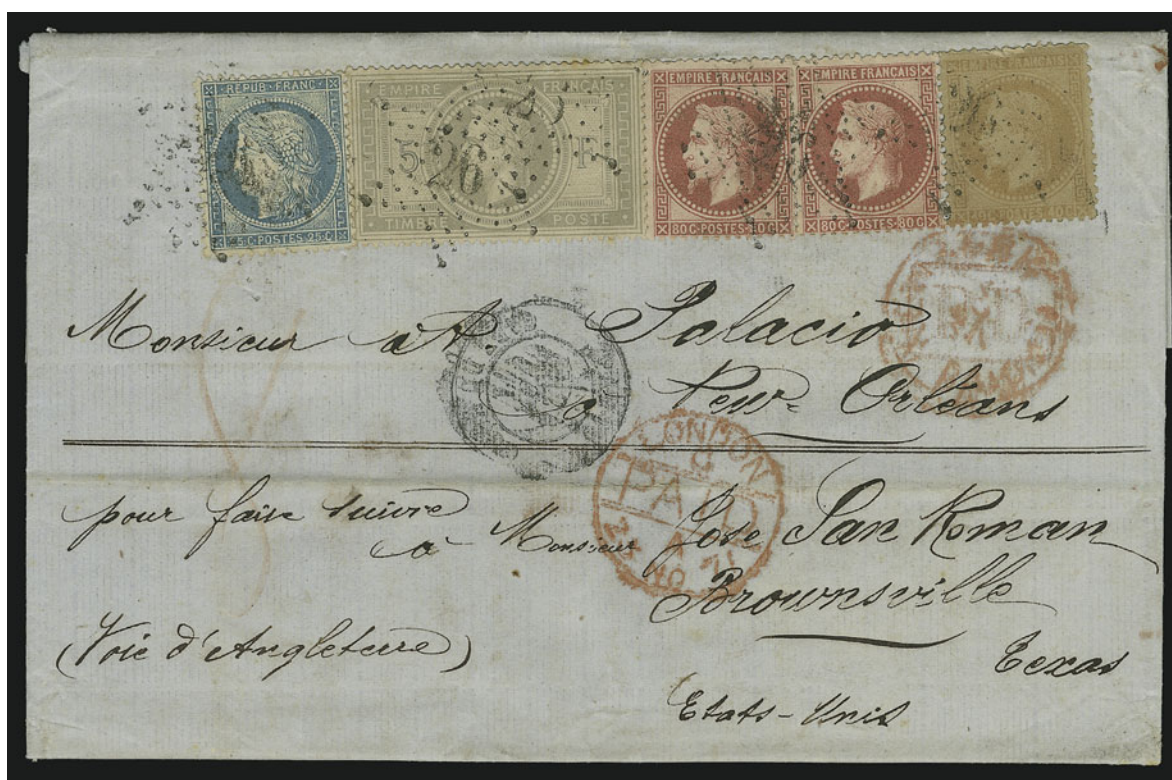 REPUB·FRANC·
5·C·POSTES·25·C·
EMPIRE FRANÇAIS
5 F
TIMBRE POSTE
26
EMPIRE FRANÇAIS
80C·POSTES·80C
EMPIRE FRANÇAIS
80C·POSTES·80C
EMPIRE FRANÇAIS
Monsieur A. Palacio
à New-Orléans
pour faire suivre
à Monsieur Jose San Roman
Brownsville
Texas
(Voie d'Angleterre)
Etats-Unis
PD
LONDON
PAID
71